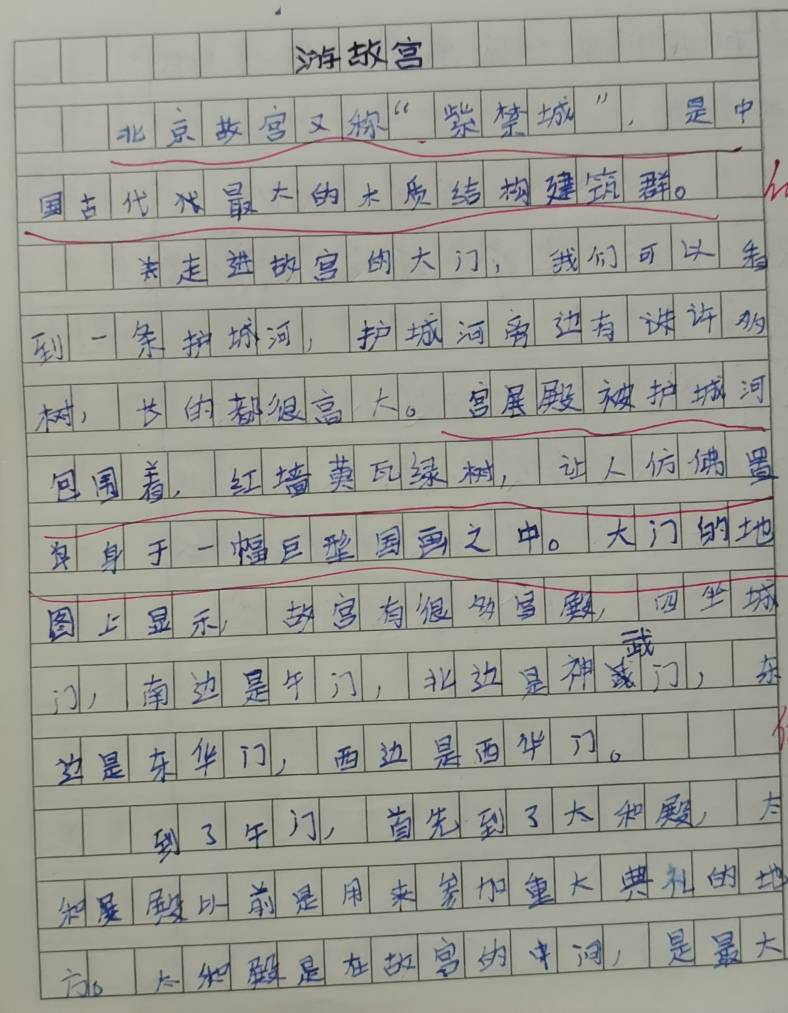 游故宫
北京故宫又称“紫禁城”，是中
国古代最大的木质结构建筑群。
走进故宫的大门，我们可以看
到一条护城河，护城河旁边有许多
树，长的都很高大。宫殿被护城河
包围着，红墙黄瓦绿树，让人仿佛置
身于一幅巨型国画之中。大门的地
图上显示，故宫有很多宫殿，四坐城
门，南边是午门，北边是神武门，东
边是东华门，西边是西华门。
到了午门，首先到了太和殿，太
和殿以前是用来参加重大典礼的地
方。太和殿是在故宫的中间，是最大